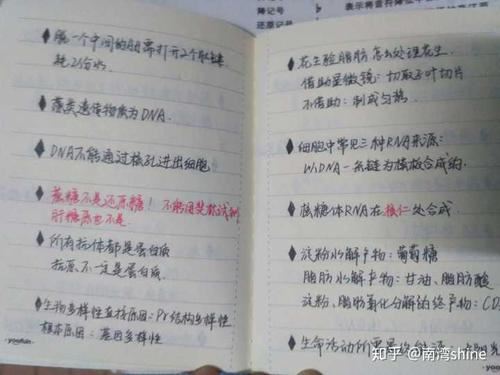 降记号
还原记号
表示将音符降
脱一个中间的肽需打开2个肽键.
耗2分水.
藻类遗传物质为DNA.
DNA不能通过核孔进出细胞
蔗糖不是还原糖！不能用斐林试剂
肝糖原也不是.
所有抗体都是蛋白质
抗原不一定是蛋白质.
生物多样性直接原因：Pr结构多样性
根本原因：基因多样性
花生验脂肪怎么处理花生.
借助显微镜：切取子叶切片
不借助：制成匀浆
细胞中常见三种RNA来源：
以DNA一条链为模板合成的.
核糖体RNA在核仁处合成.
淀粉水解产物：葡萄糖
脂肪水解产物：甘油、脂肪酸
淀粉、脂肪氧化分解的终产物：CO
生命活动所需
知乎 @南湾shine